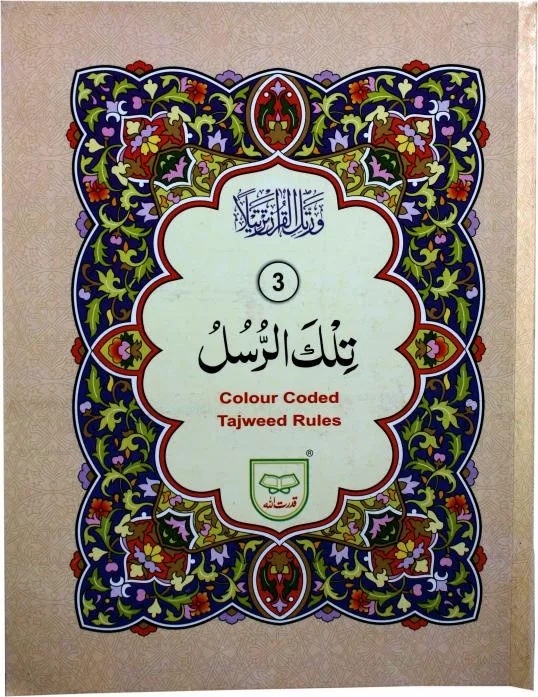 ورتل القرآن ترتيلا
3
تِلْكَ الرُّسُلُ
Colour Coded
Tajweed Rules
®
قدرت الله